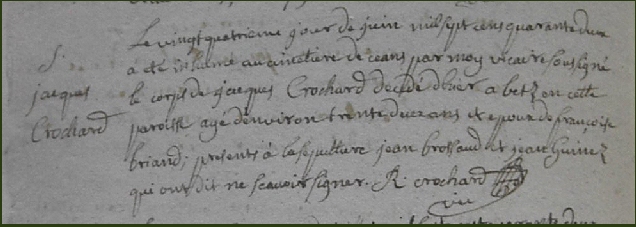 S.
jacques
Crochard
Le vingt quatrieme jour de juin mil sept cens quarante deux
a eté inhumé au cimetiere de ceans par moy vicaire soussigné
le corps de jacques Crochard decedé d'hier a betz en cette
paroisse agé d'environ trente deux ans epoux de francoise
briand, presents à la sepulture jean brossaud et jean
qui ont dit ne scavoir signer. R. crochard
vic